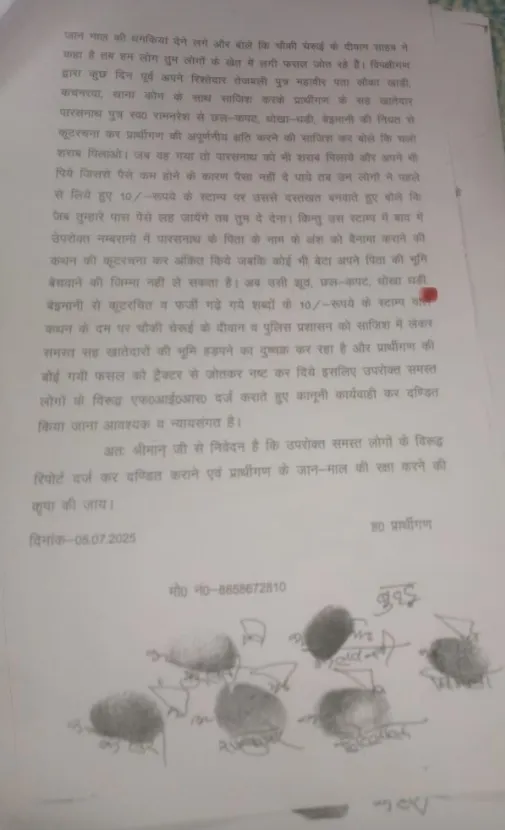 जान माल की धमकियां देने लगे और बोले कि चौकी चेरूई के दीवान साहब ने
कहा है तब हम लोग तुम लोगों के खेत में लगी फसल जोत रहे है। विपक्षीगण
द्वारा कुछ दिन पूर्व अपने रिश्तेदार तेजबली पुत्र महावीर पता लोका खाड़ी,
थाना कोन के साथ साजिश करके प्रार्थीगण के सह खातेदार
पारसनाथ पुत्र स्व0 रामनरेश से छल-कपट, धोखा-धड़ी, बेइमानी की नियत से
कूटरचना कर प्रार्थीगण की अपूर्णनीय क्षति करने की साजिश कर बोले कि चलो
शराब पिलाओ। जब वह गया तो पारसनाथ को भी शराब पिलाये और अपने भी
पिये जिससे पैसे कम होने के कारण पैसा नहीं दे पाये तब उन लोगों ने पहले
से लिये हुए 10/-रूपये के स्टाम्प पर उससे दस्तखत बनवाते हुए बोले कि
जब तुम्हारे पास पैसे लह जायेंगे तब तुम दे देना। किन्तु उस स्टाम्प में बाद में
उपरोक्त नम्बरानो में पारसनाथ के पिता के नाम के अंश को बैनामा कराने की
कथन की कूटरचना कर अंकित किये जबकि कोई भी बेटा अपने पिता की भूमि
बेचवाने की जिम्मा नहीं ले सकता है। अब उसी झूठ, छल-कपट, धोखा धड़ी,
बेइमानी से कूटरचित व फर्जी गढ़े गये शब्दों के 10/-रूपये के स्टाम्प वाले
कथन के दम पर चौकी चेरूई के दीवान व पुलिस प्रशासन को साजिश में लेकर
समस्त सह खातेदारों की भूमि हड़पने का दुष्चक्र कर रहा है और प्रार्थीगण की
बोई गयी फसल को ट्रैक्टर से जोतकर नष्ट कर दिये इसलिए उपरोक्त समस्त
लोगों के विरूद्ध एफ0आई0आर0 दर्ज कराते हुए कानूनी कार्यवाही कर दण्डित
किया जाना आवश्यक व न्यायसंगत है।
अतः श्रीमान् जी से निवेदन है कि उपरोक्त समस्त लोगों के विरूद्ध
रिपोर्ट दर्ज कर दण्डित कराने एवं प्रार्थीगण के जान-माल की रक्षा करने की
कृपा की जाय।
दिनांक-08.07.2025
ह0 प्रार्थीगण
मो0 नं0-8858672810